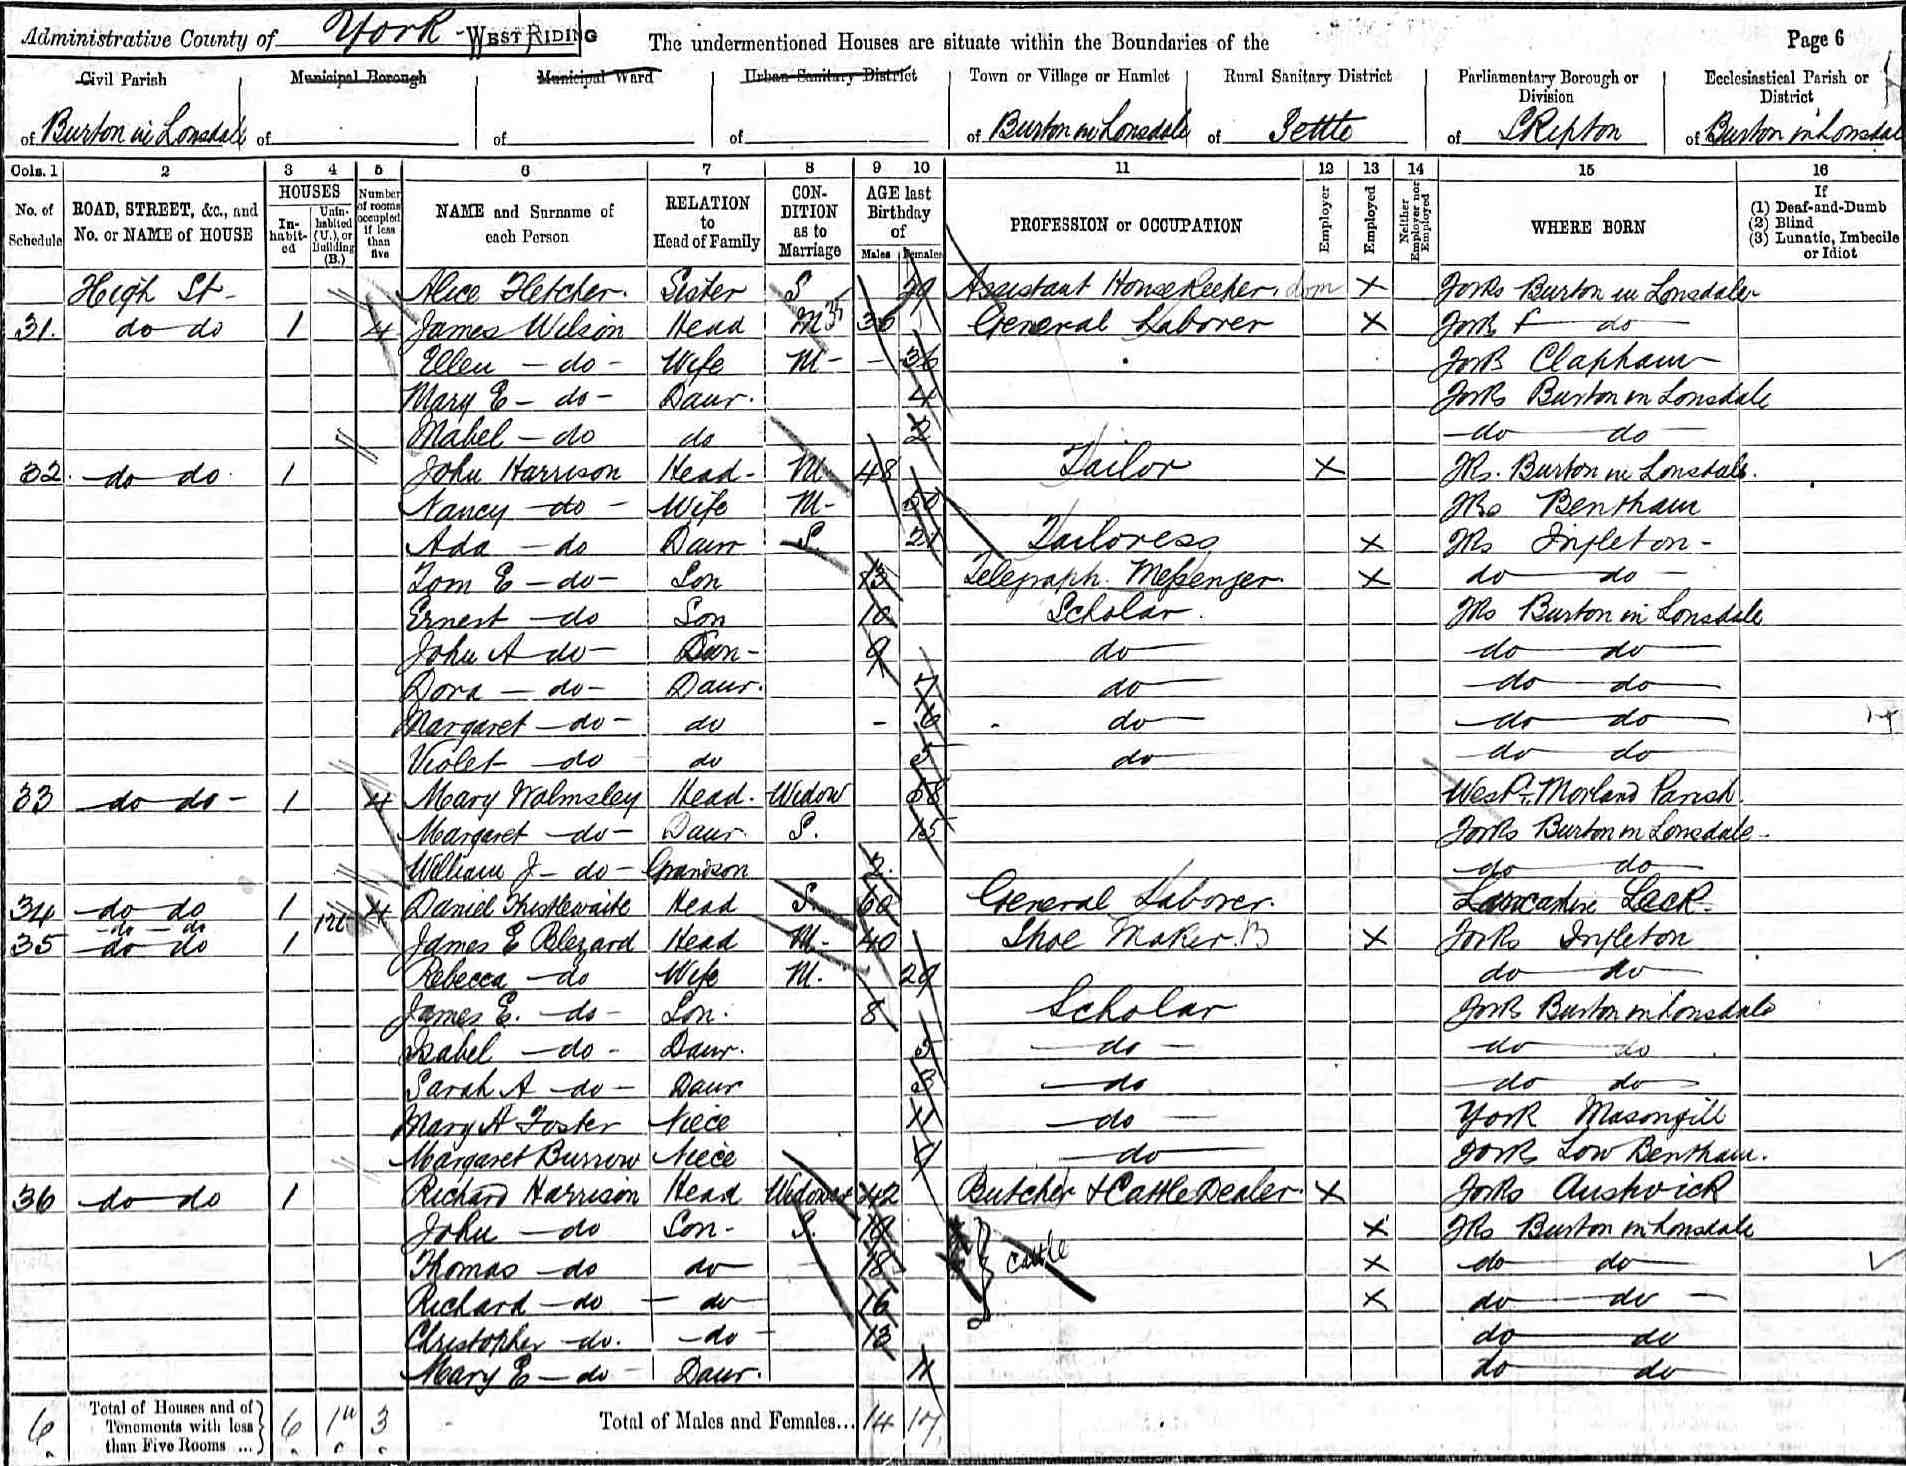 Administrative County of York - WEST RIDING The undermentioned Houses are situate within the Boundaries of the Page 6
Civil Parish Municipal Borough Municipal Ward Urban Sanitary District Town or Village or Hamlet Rural Sanitary District Parliamentary Borough or Division Ecclesiastical Parish or District
of Burton in Lonsdale of of of of Burton in Lonsdale of Settle of Skipton of Burton in Lonsdale
Cols. 1 2 3 4 5 6 7 8 9 10 11 12 13 14 15 16
No. of Schedule ROAD, STREET, &c., and No. or NAME of HOUSE HOUSES Inhabited Uninhabited (U.), or Building (B.) Number of rooms occupied if less than five NAME and Surname of each Person RELATION to Head of Family CONDITION as to Marriage AGE last Birthday of Males Females PROFESSION or OCCUPATION Employer Employed Neither Employer nor Employed WHERE BORN If (1) Deaf-and-Dumb (2) Blind (3) Lunatic, Imbecile or Idiot
High St - Alice Fletcher. Sister S Assistant HouseKeeper. dom X Yorks Burton in Lonsdale
31. do do 1 4 James Wilson Head M General Laborer X York do
Ellen - do - Wife M - - 36 York Clapham
Mary E - do - Daur. 4 Yorks Burton in Lonsdale
Mabel - do do 2 do do
32. do do. 1 John Harrison Head - M 48 Tailor X Yks. Burton in Lonsdale.
Nancy - do - Wife M - 50 Yks Bentham
Ada - do Daur S. 21 Tailoress X Yks Ingleton -
Tom E - do - Son 13 Telegraph Messenger. X do do
Ernest - do Son 10 Scholar. Yks Burton in Lonsdale
John A do - 9 do do do
Dora - do - Daur. 7 do do do
Margaret - do - do - 6 do do do
Violet - do do 5 do do do
33 do do - 1 4 Mary Walmsley Head. Widow 58 West Morland Parish.
Margaret - do - Daur S. 15 Yorks Burton in Lonsdale -
William J - do - Grandson 2. do do
34 do do 1 4 Daniel Thistlewaite Head S. 60 General Laborer. Lancashire Leck
do - do
35 do do 1 James E Blezard Head M - 40 Shoe Maker. B X Yorks Ingleton
Rebecca - do Wife M. 29 do do
James E. - do - Son. 8 Scholar York Burton in Lonsdale
Isabel - do - Daur. 5 do do do
Sarah A - do - Daur 3 do do do
Mary A Foster Niece 11 do York Masongill
Margaret Burrow Niece do Yorks Low Bentham.
36 do do 1 Richard Harrison Head Widower 42 Butcher & Cattle Dealer. X Yorks Austwick
John - do Son - S. 19 X Yks Burton in Lonsdale
Thomas - do do 18 Cattle X do do
Richard - do do 16 X do do
Christopher - do. do 13 do do
Mary E - do Daur. 11 do do
6 Total of Houses and of Tenements with less than Five Rooms ... 6 1 u 3 Total of Males and Females... 14 17